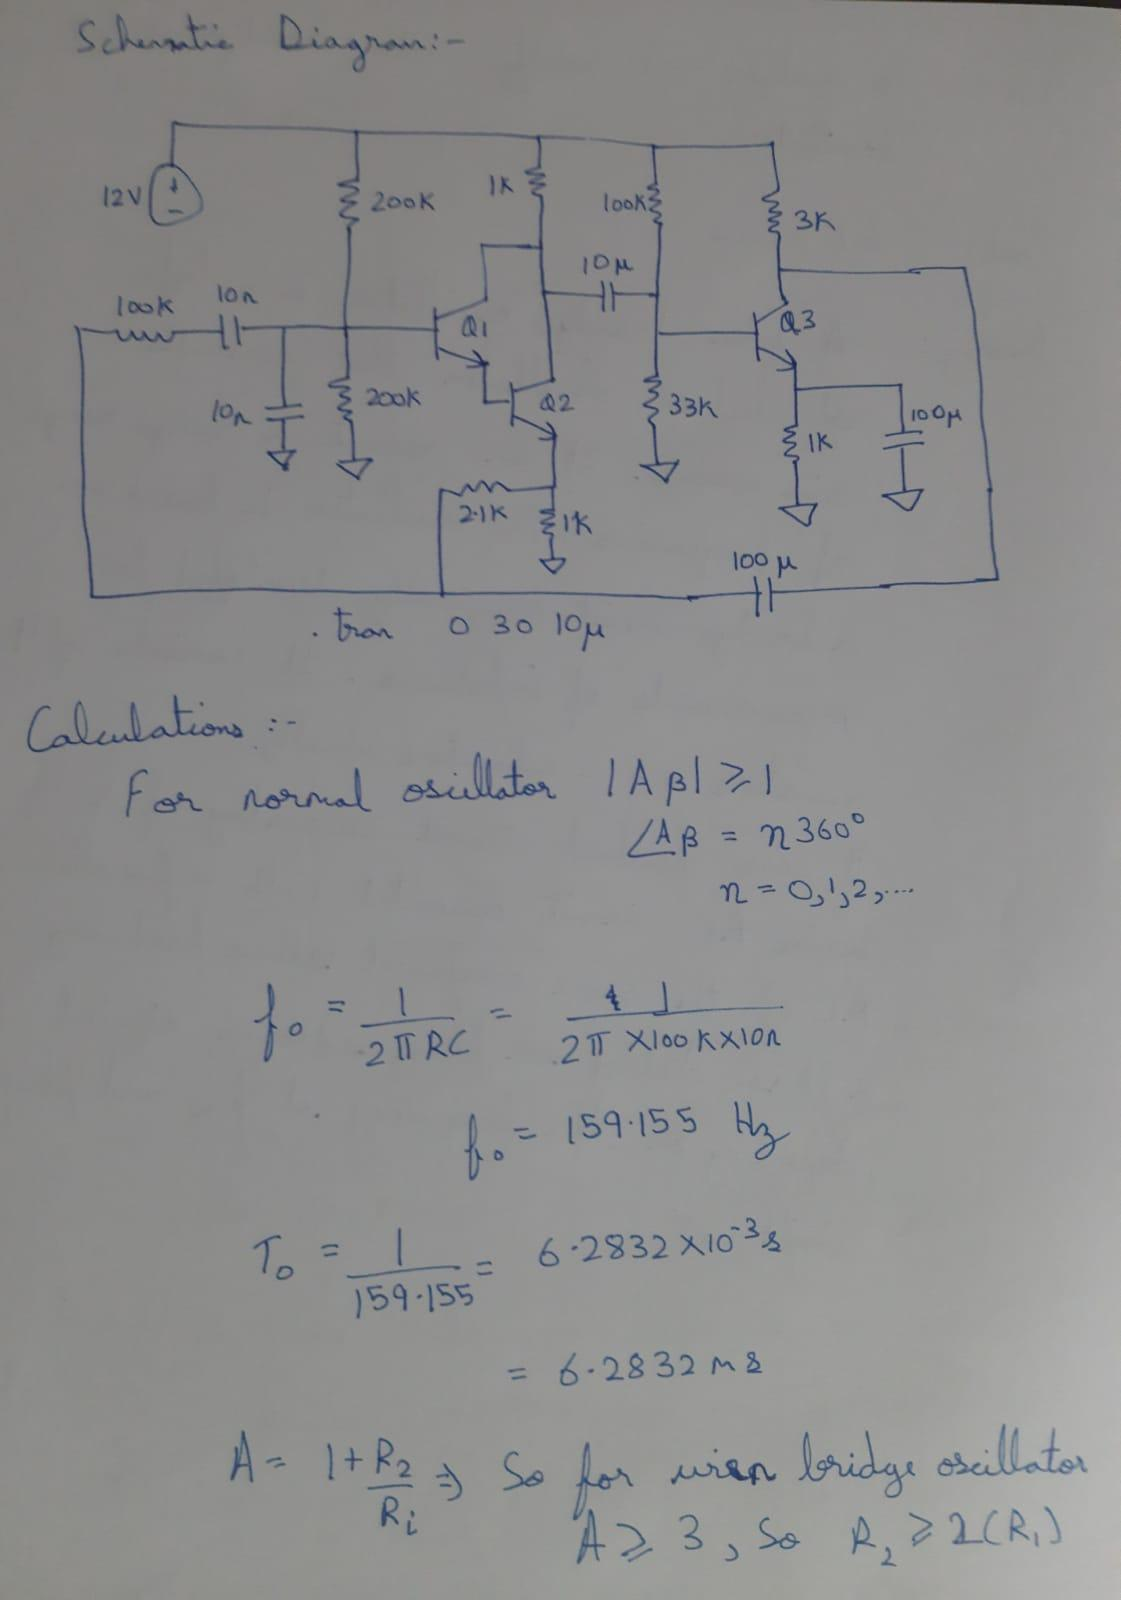 Schematic Diagram:-
12V
+
-
200K
1K
100K
3K
10μ
100K
10n
Q1
Q3
10n
200K
Q2
33K
100μ
1K
2.1K
1K
100μ
.tran 0 30 10μ
Calculations :-
For normal oscillator |Aβ| ≥ 1
∠Aβ = n360°
n = 0,1,2,....
f₀ = 1/2πRC = 1/2π×100K×10n
f₀ = 159.155 Hz
T₀ = 1/159.155 = 6.2832×10⁻³s
= 6.2832ms
A = 1+R₂/Rᵢ ⇒ So for wien bridge oscillator
A ≥ 3, So R₂ ≥ 2(R₁)